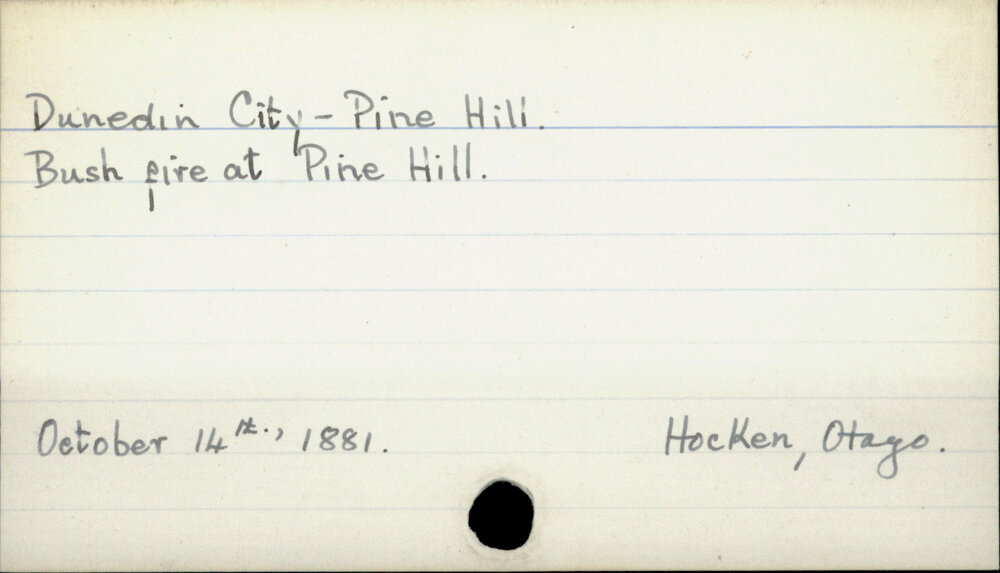 Dunedin City - Pine Hill.
Bush fire at Pine Hill.
October 14th., 1881.
Hocken, Otago.